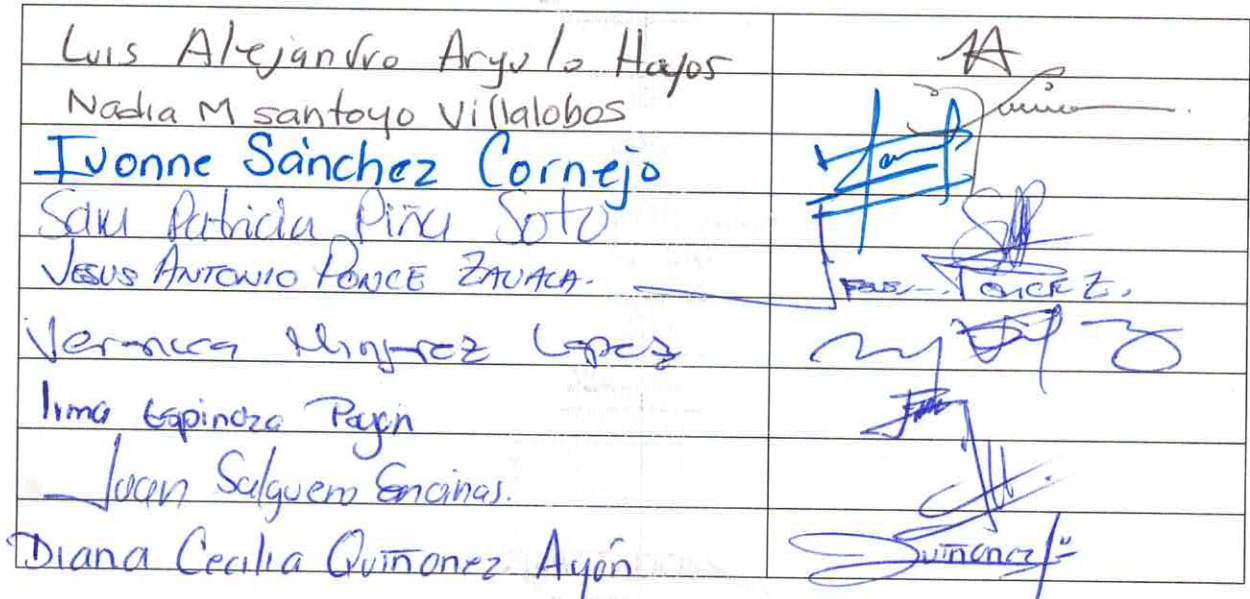 Luis Alejandro Argulo Hoyos
Nadia M santoyo Villalobos
Ivonne Sánchez Cornejo
Patricia Piña Soto
JESUS ANTONIO PONCE ZAVALA.
PONCE Z.
Veronica Lopez
Irma Espinoza Payan
Juan Salguero Encinas.
Diana Cecilia Quiñonez Ayón
Quiñonez